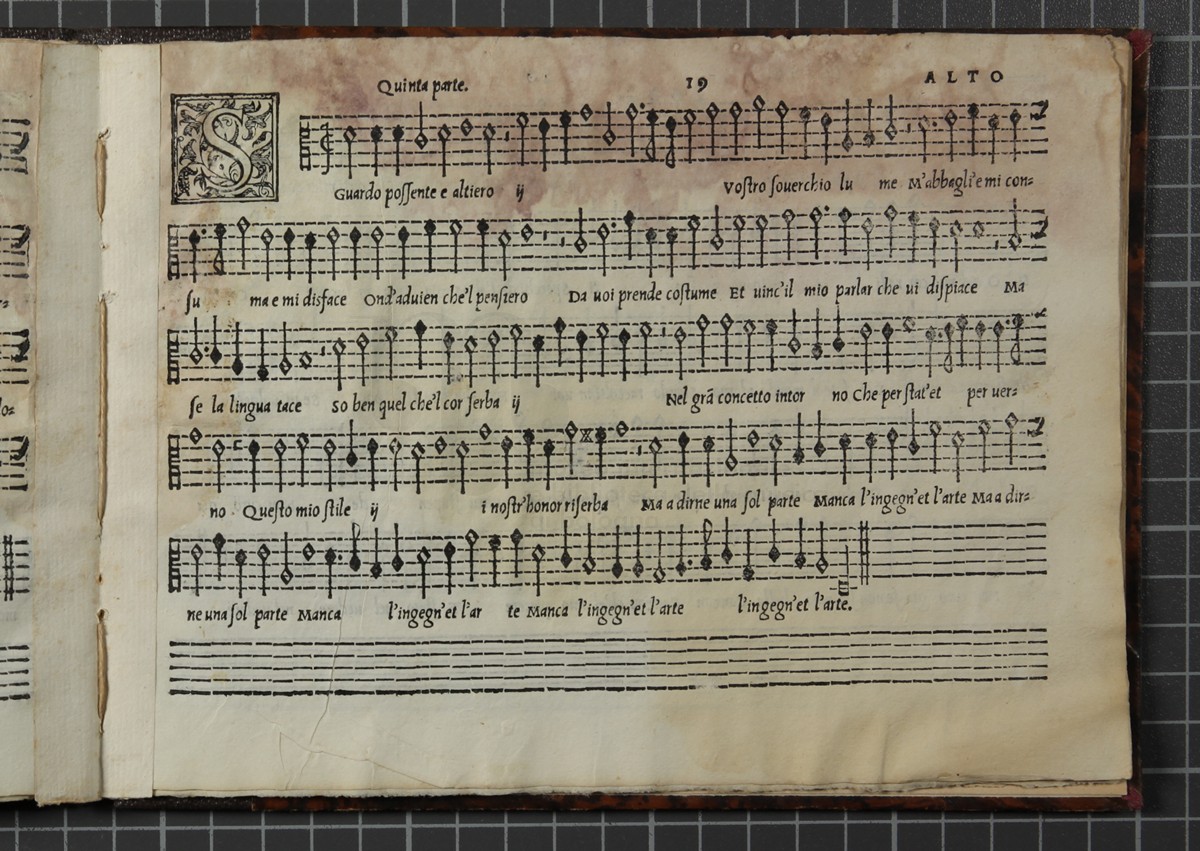 Quinta parte. 19 ALTO
S
Guardo possente e altiero ij Vostro souerchio lu me M'abbagli'e mi con=
su ma e mi disface Ond'aduien che'l pensiero Da uoi prende costume Et uinc'il mio parlar che ui dispiace Ma
se la lingua tace So ben quel che'l cor serba ij Nel grã concetto intor no Che per stat'et per uer=
no Questo mio stile ij i nostr'honor riserba Ma a dirne una sol parte Manca l'ingegn'et l'arte Ma a dir=
ne una sol parte Manca l'ingegn'et l'ar te Manca l'ingegn'et l'arte l'ingegn'et l'arte.